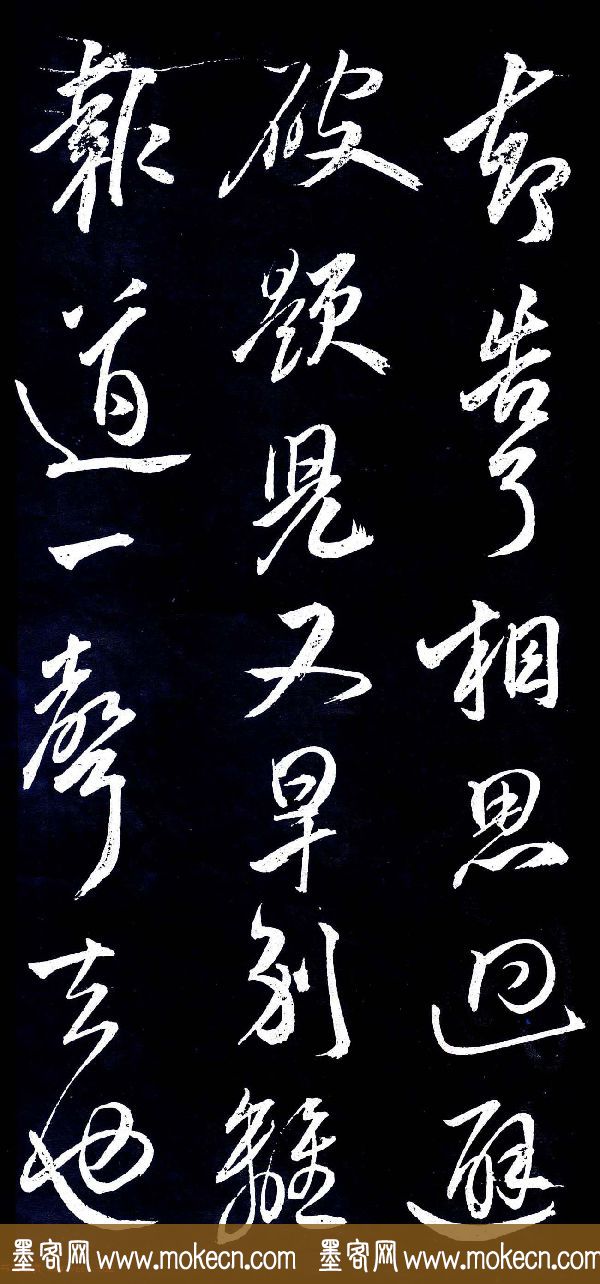 却告了相思迴避
破題兒又早別離
報道一聲去也
墨客网 www.mokecn.com 墨客网 www.mokecn.com